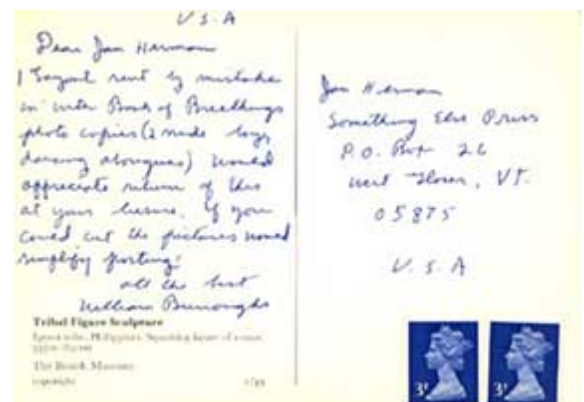 U.S.A
Dear Jan Herman
I sent by mistake
in with Book of Breethings
photo copies (2 nude boys
) would
appreciate return of this
at your leisure. If you
could cut the pictures would
simplify posting.
all the best
William Burroughs
Tribal Figure Sculpture
Philippines. Squatting figure of
The British Museum
copyright
Jan Herman
Something Else Press
P.O. Box 26
West Glover, VT.
05875
U.S.A
3P 3P